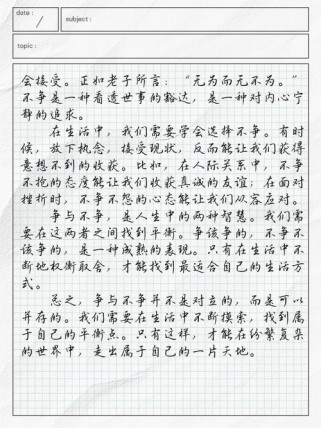 date :
subject :
topic :
会接受。正如老子所言：“无为而无不为。”
不争是一种看透世事的豁达，是一种对内心宁
静的追求。
在生活中，我们需要学会选择不争。有时
候，放下执念，接受现状，反而能让我们获得
意想不到的收获。比如，在人际关系中，不争
不抢的态度能让我们收获真诚的友谊；在面对
挫折时，不争不怨的心态能让我们从容应对。
争与不争，是人生中的两种智慧。我们需
要在这两者之间找到平衡。争该争的，不争不
该争的，是一种成熟的表现。只有在生活中不
断地权衡取舍，才能找到最适合自己的生活方
式。
总之，争与不争并不是对立的，而是可以
并存的。我们需要在生活中不断摸索，找到属
于自己的平衡点。只有这样，才能在纷繁复杂
的世界中，走出属于自己的一片天地。